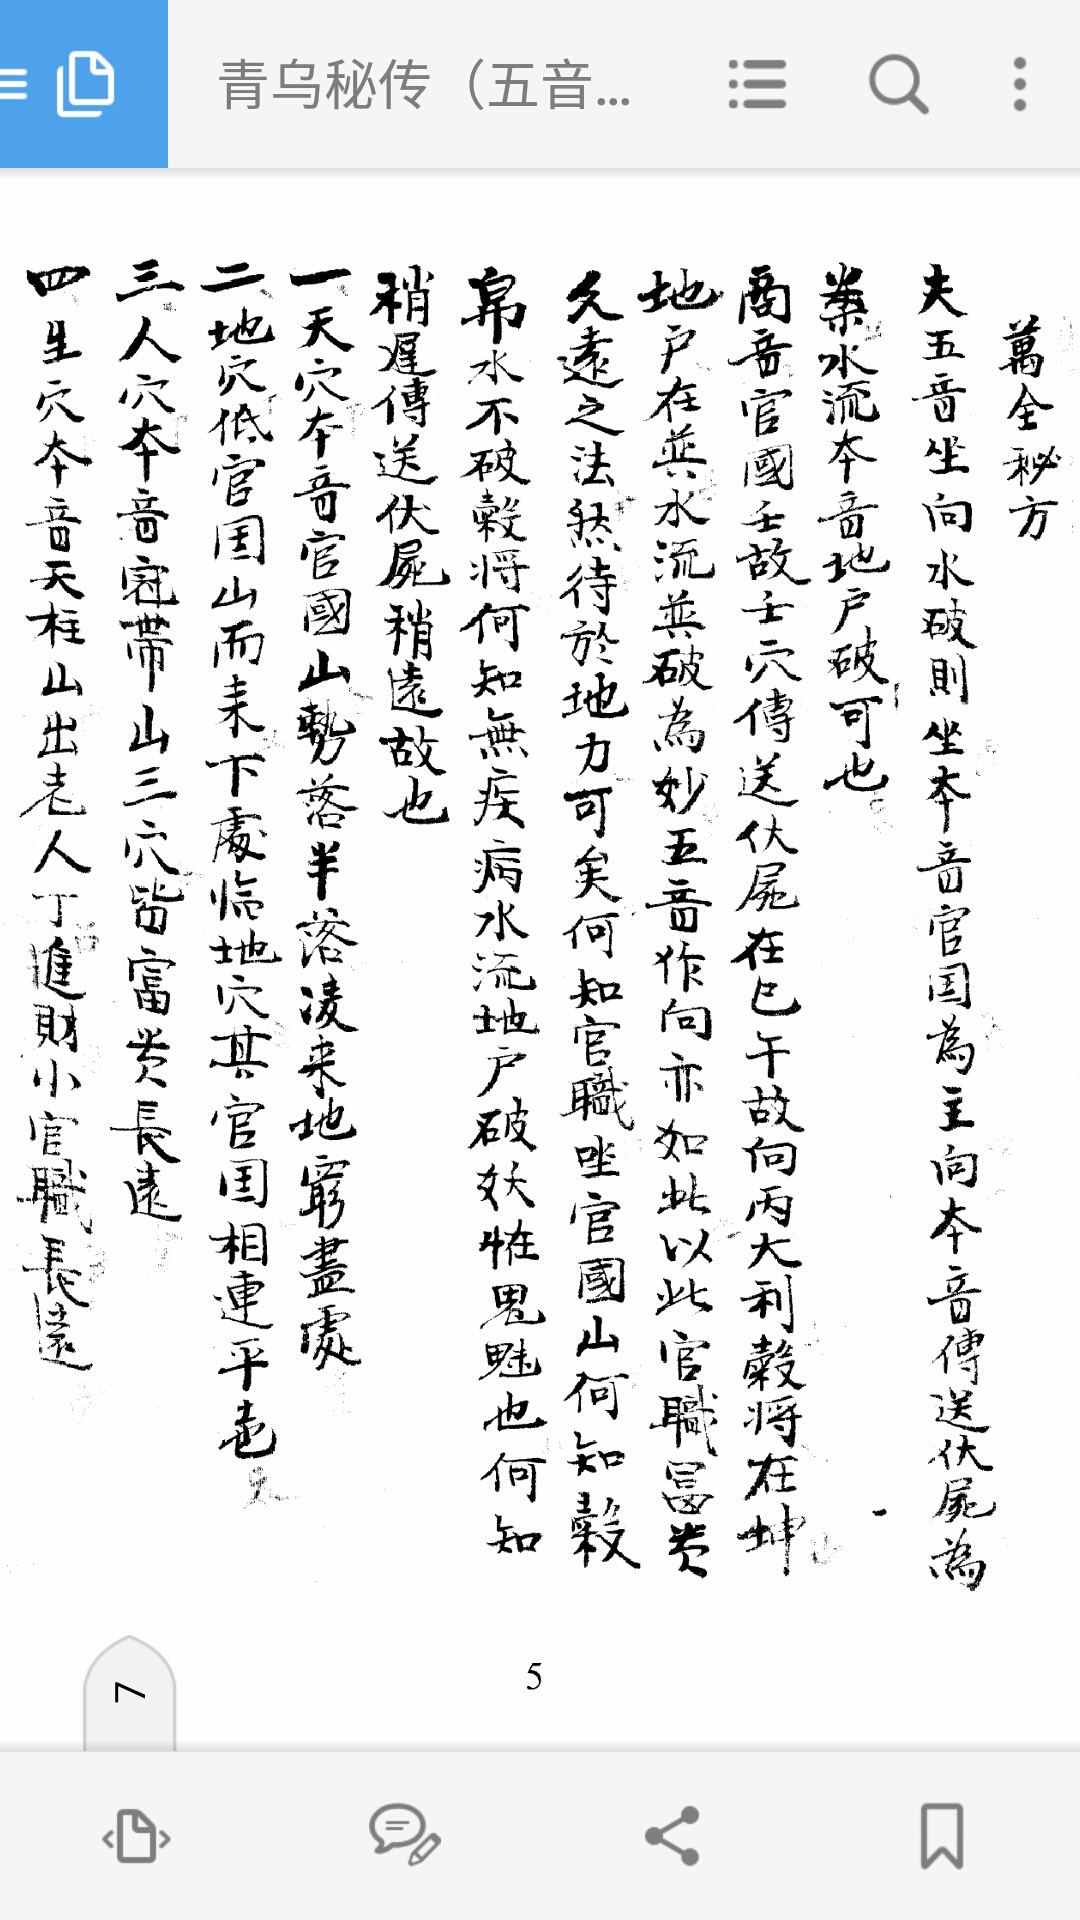 青乌秘传（五音...
萬全秘方
夫五音坐向水破則坐本音官国為主向本音傳送伏屍為
業水流本音地户破可也
商音官國壬故壬穴傳送伏屍在巳午故向丙大利穀将在坤
地户在巽水流巽破為妙五音作向亦如此以此官職冨贵
久遠之法然待於地力可矣何知官職坐官國山何知穀
帛水不破穀将何知無疾病水流地户破妖怪鬼魅也何知
稍遲傳送伏屍稍遠故也
一天穴本音官國山勢落半落凌来地窮盡處
二地穴低官国山而来下處临地穴其官国相連平也
三人穴本音冠帶山三穴皆富贵長遠
四生穴本音天柱山出老人丁進財小官職長遠
5
7